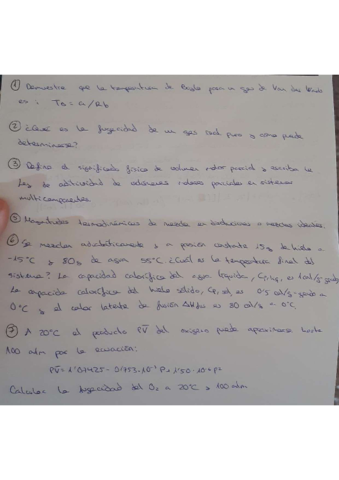 ① Demuestre que la temperatura de Boyle para un gas de Van der Waals
es: T_B = a/Rb
② ¿Qué es la fugacidad de un gas real puro y como puede
determinarse?
③ Defina el significado físico de volumen molar parcial y escriba la
ley de aditividad de volúmenes molares parciales en sistemas
multicomponentes
⑤ Magnitudes termodinámicas de mezcla en disoluciones o mezclas ideales
⑥ Se mezclan adiabáticamente y a presión constante 15g de hielo a
-15°C y 80g de agua 55°C ¿Cuál es la temperatura final del
sistema? La capacidad calorífica del agua líquida, Cp,liq, es 1 cal/g·grado
La capacidad calorífica del hielo sólido, Cp, sol, es 0'5 cal/g·grado a
0°C y el calor latente de fusión ΔHfus es 80 cal/g a 0°C.
⑦ A 20°C el producto PV̄ del oxígeno puede aproximarse hasta
100 atm por la ecuación:
PV̄ = 1'07425 - 0'753·10⁻³ P + 1'50·10⁻⁶ P²
Calcular la fugacidad del O₂ a 20°C y 100 atm